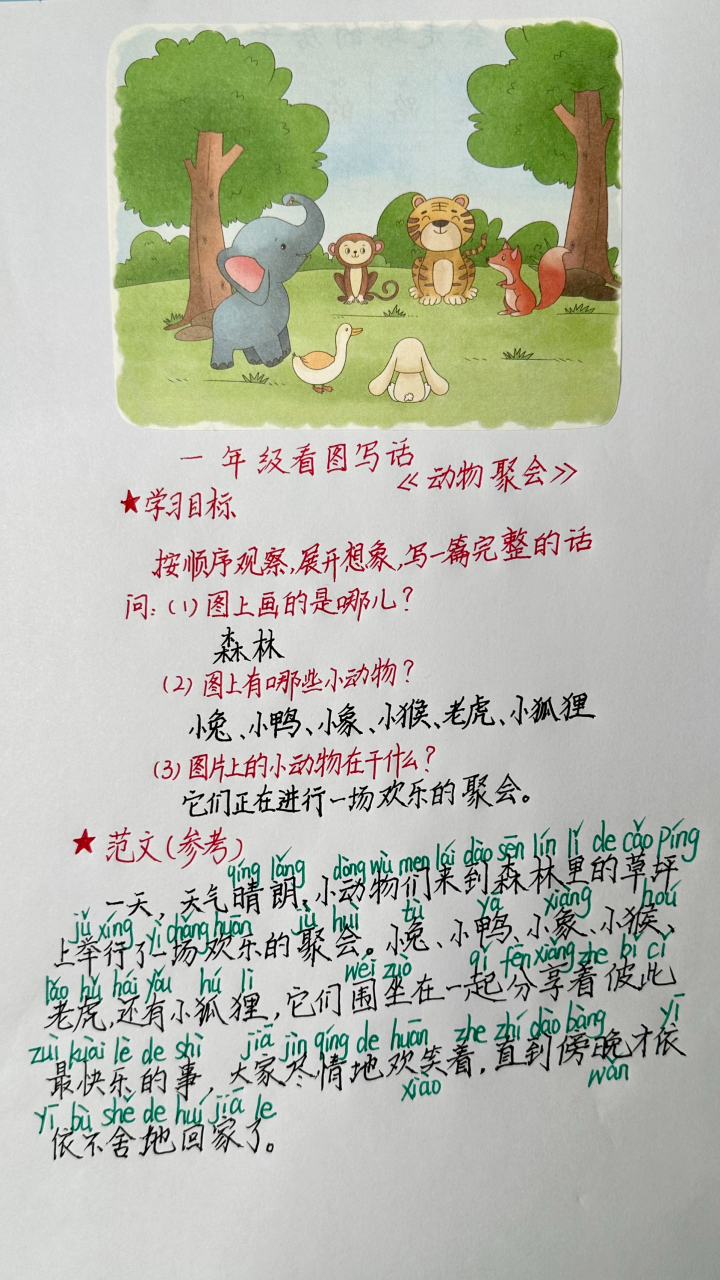 一年级看图写话
《动物聚会》
★学习目标
按顺序观察,展开想象,写一篇完整的话
问:(1)图上画的是哪儿?
森林
(2)图上有哪些小动物?
小兔、小鸭、小象、小猴、老虎、小狐狸
(3)图片上的小动物在干什么?
它们正在进行一场欢乐的聚会。
★范文(参考)
qíng lǎng dòng wù men lái dào sēn lín lǐ de cǎo píng
一天,天气晴朗,小动物们来到森林里的草坪
jǔ xíng yì chǎng huān jù huì tù yā xiàng hóu
上举行了一场欢乐的聚会。小兔、小鸭、小象、小猴、
lǎo hǔ hái yǒu hú li wéi zuò qǐ fēn xiǎng zhe bǐ cǐ
老虎,还有小狐狸,它们围坐在一起分享着彼此
zuì kuài lè de shì jiā jìn qíng de huān zhe zhí dào bàng yī
最快乐的事,大家尽情地欢笑着,直到傍晚才依
xiào wǎn
yī bù shě de huí jiā le
依不舍地回家了。